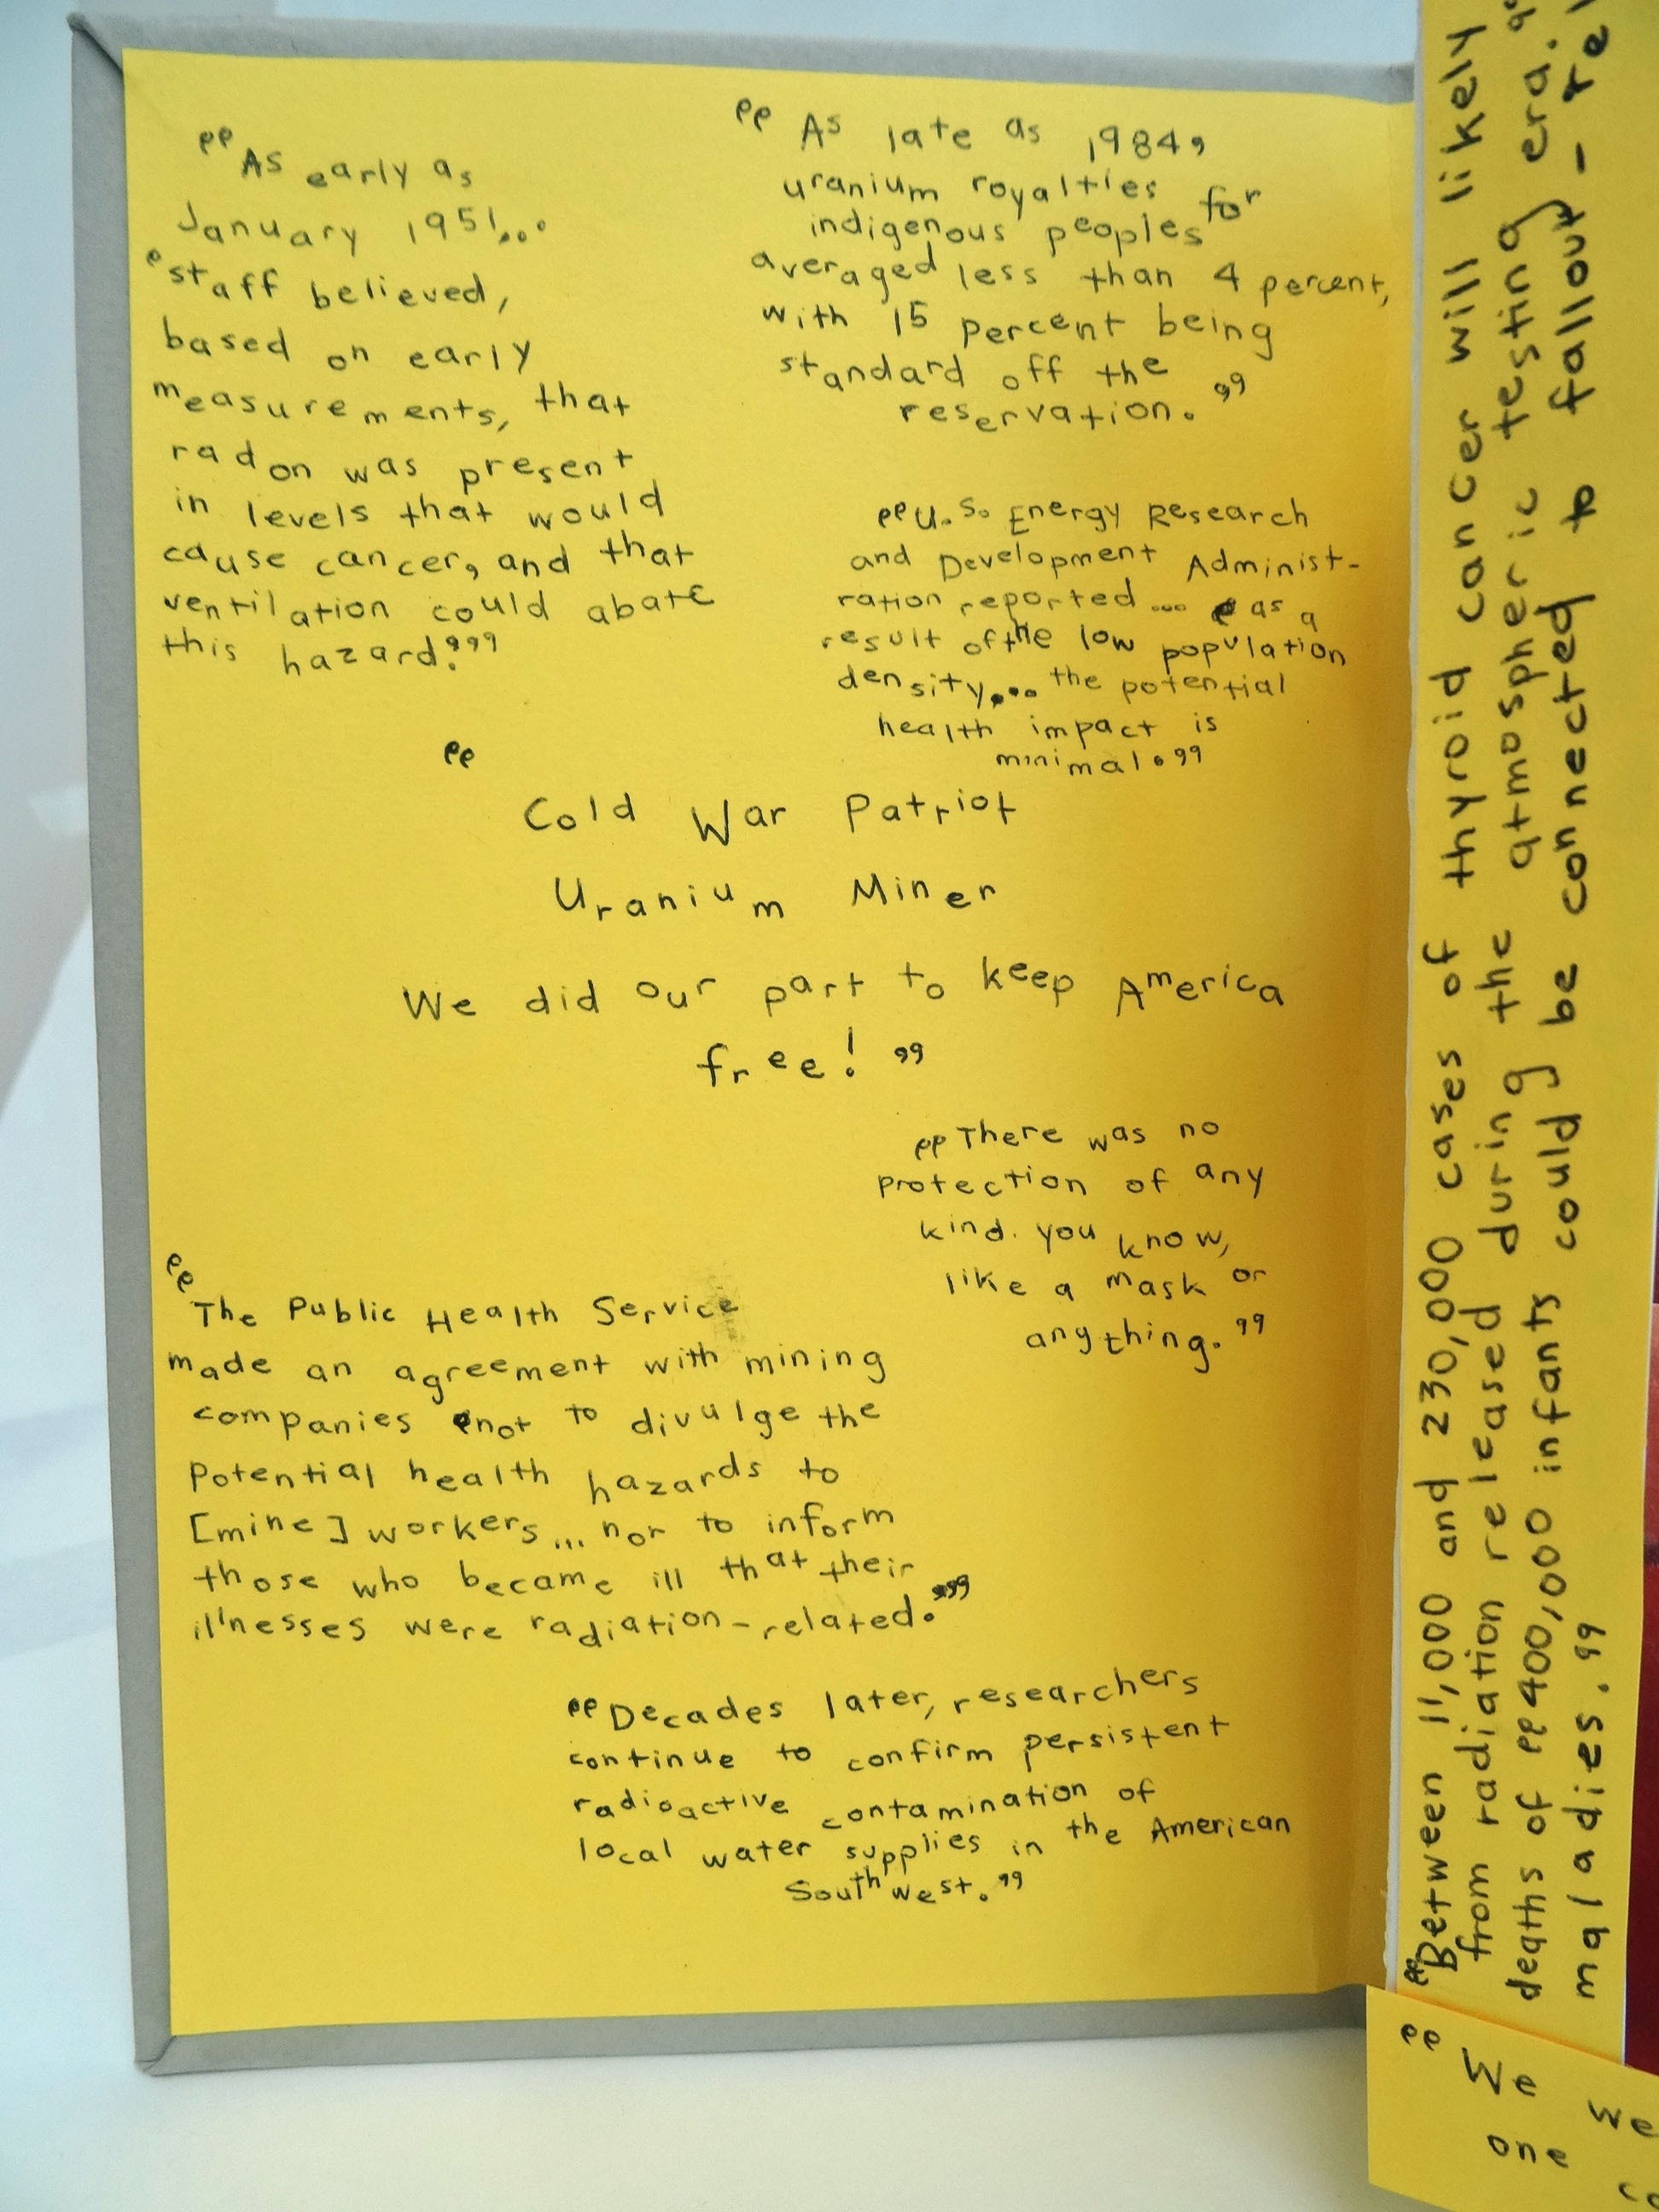 “As early as
January 1951...
‘staff believed,
based on early
measurements, that
radon was present
in levels that would
cause cancer, and that
ventilation could abate
this hazard.’”
“As late as 1984,
uranium royalties for
indigenous peoples
averaged less than 4 percent,
with 15 percent being
standard off the
reservation.”
“U.S. Energy Research
and Development Administ-
ration reported... ‘as a
result of the low population
density... the potential
health impact is
minimal.”
“
Cold War Patriot
Uranium Miner
We did our part to keep America
free!”
“There was no
protection of any
kind. you know,
like a mask or
anything.”
“The Public Health Service
made an agreement with mining
companies ‘not to divulge the
potential health hazards to
[mine] workers... nor to inform
those who became ill that their
illnesses were radiation-related.’”
“Decades later, researchers
continue to confirm persistent
radioactive contamination of
local water supplies in the American
Southwest.”
“Between 11,000 and 230,000 cases of thyroid cancer will likely
from radiation released during the atmospheric testing era.
deaths of “400,000 infants could be connected to fallout-
maladies.”
“
We
one
we